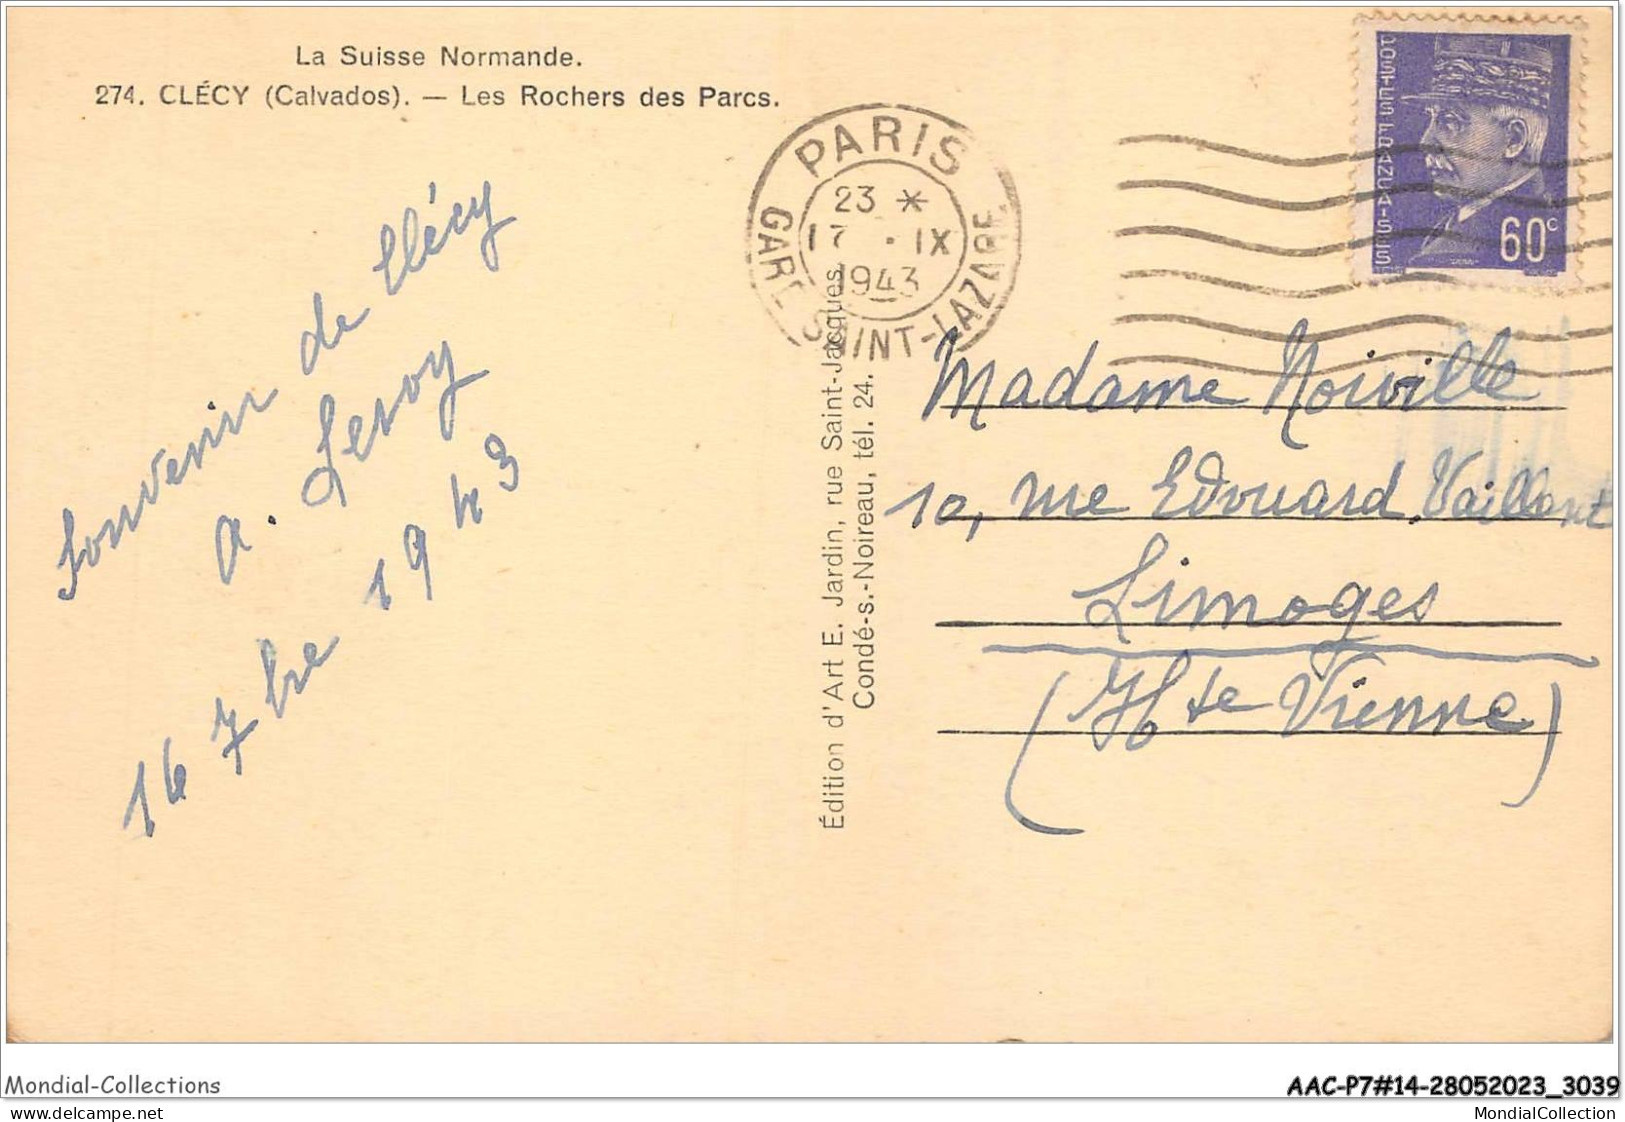 La Suisse Normande.
274. CLÉCY (Calvados). — Les Rochers des Parcs.
Souvenir de Clécy
A. Leroy
16 7bre 1943
Édition d'Art E. Jardin, rue Saint-Jacques
Condé-s.-Noireau, tél. 24.
PARIS
23 *
17 · IX
1943
GARE SAINT-LAZARE
POSTES FRANÇAISES
60c
Madame Noiville
10, rue Edouard Vaillant
Limoges
(Hte Vienne)
Mondial-Collections
AAC-P7#14-28052023_3039
delcampe.net
MondialCollection